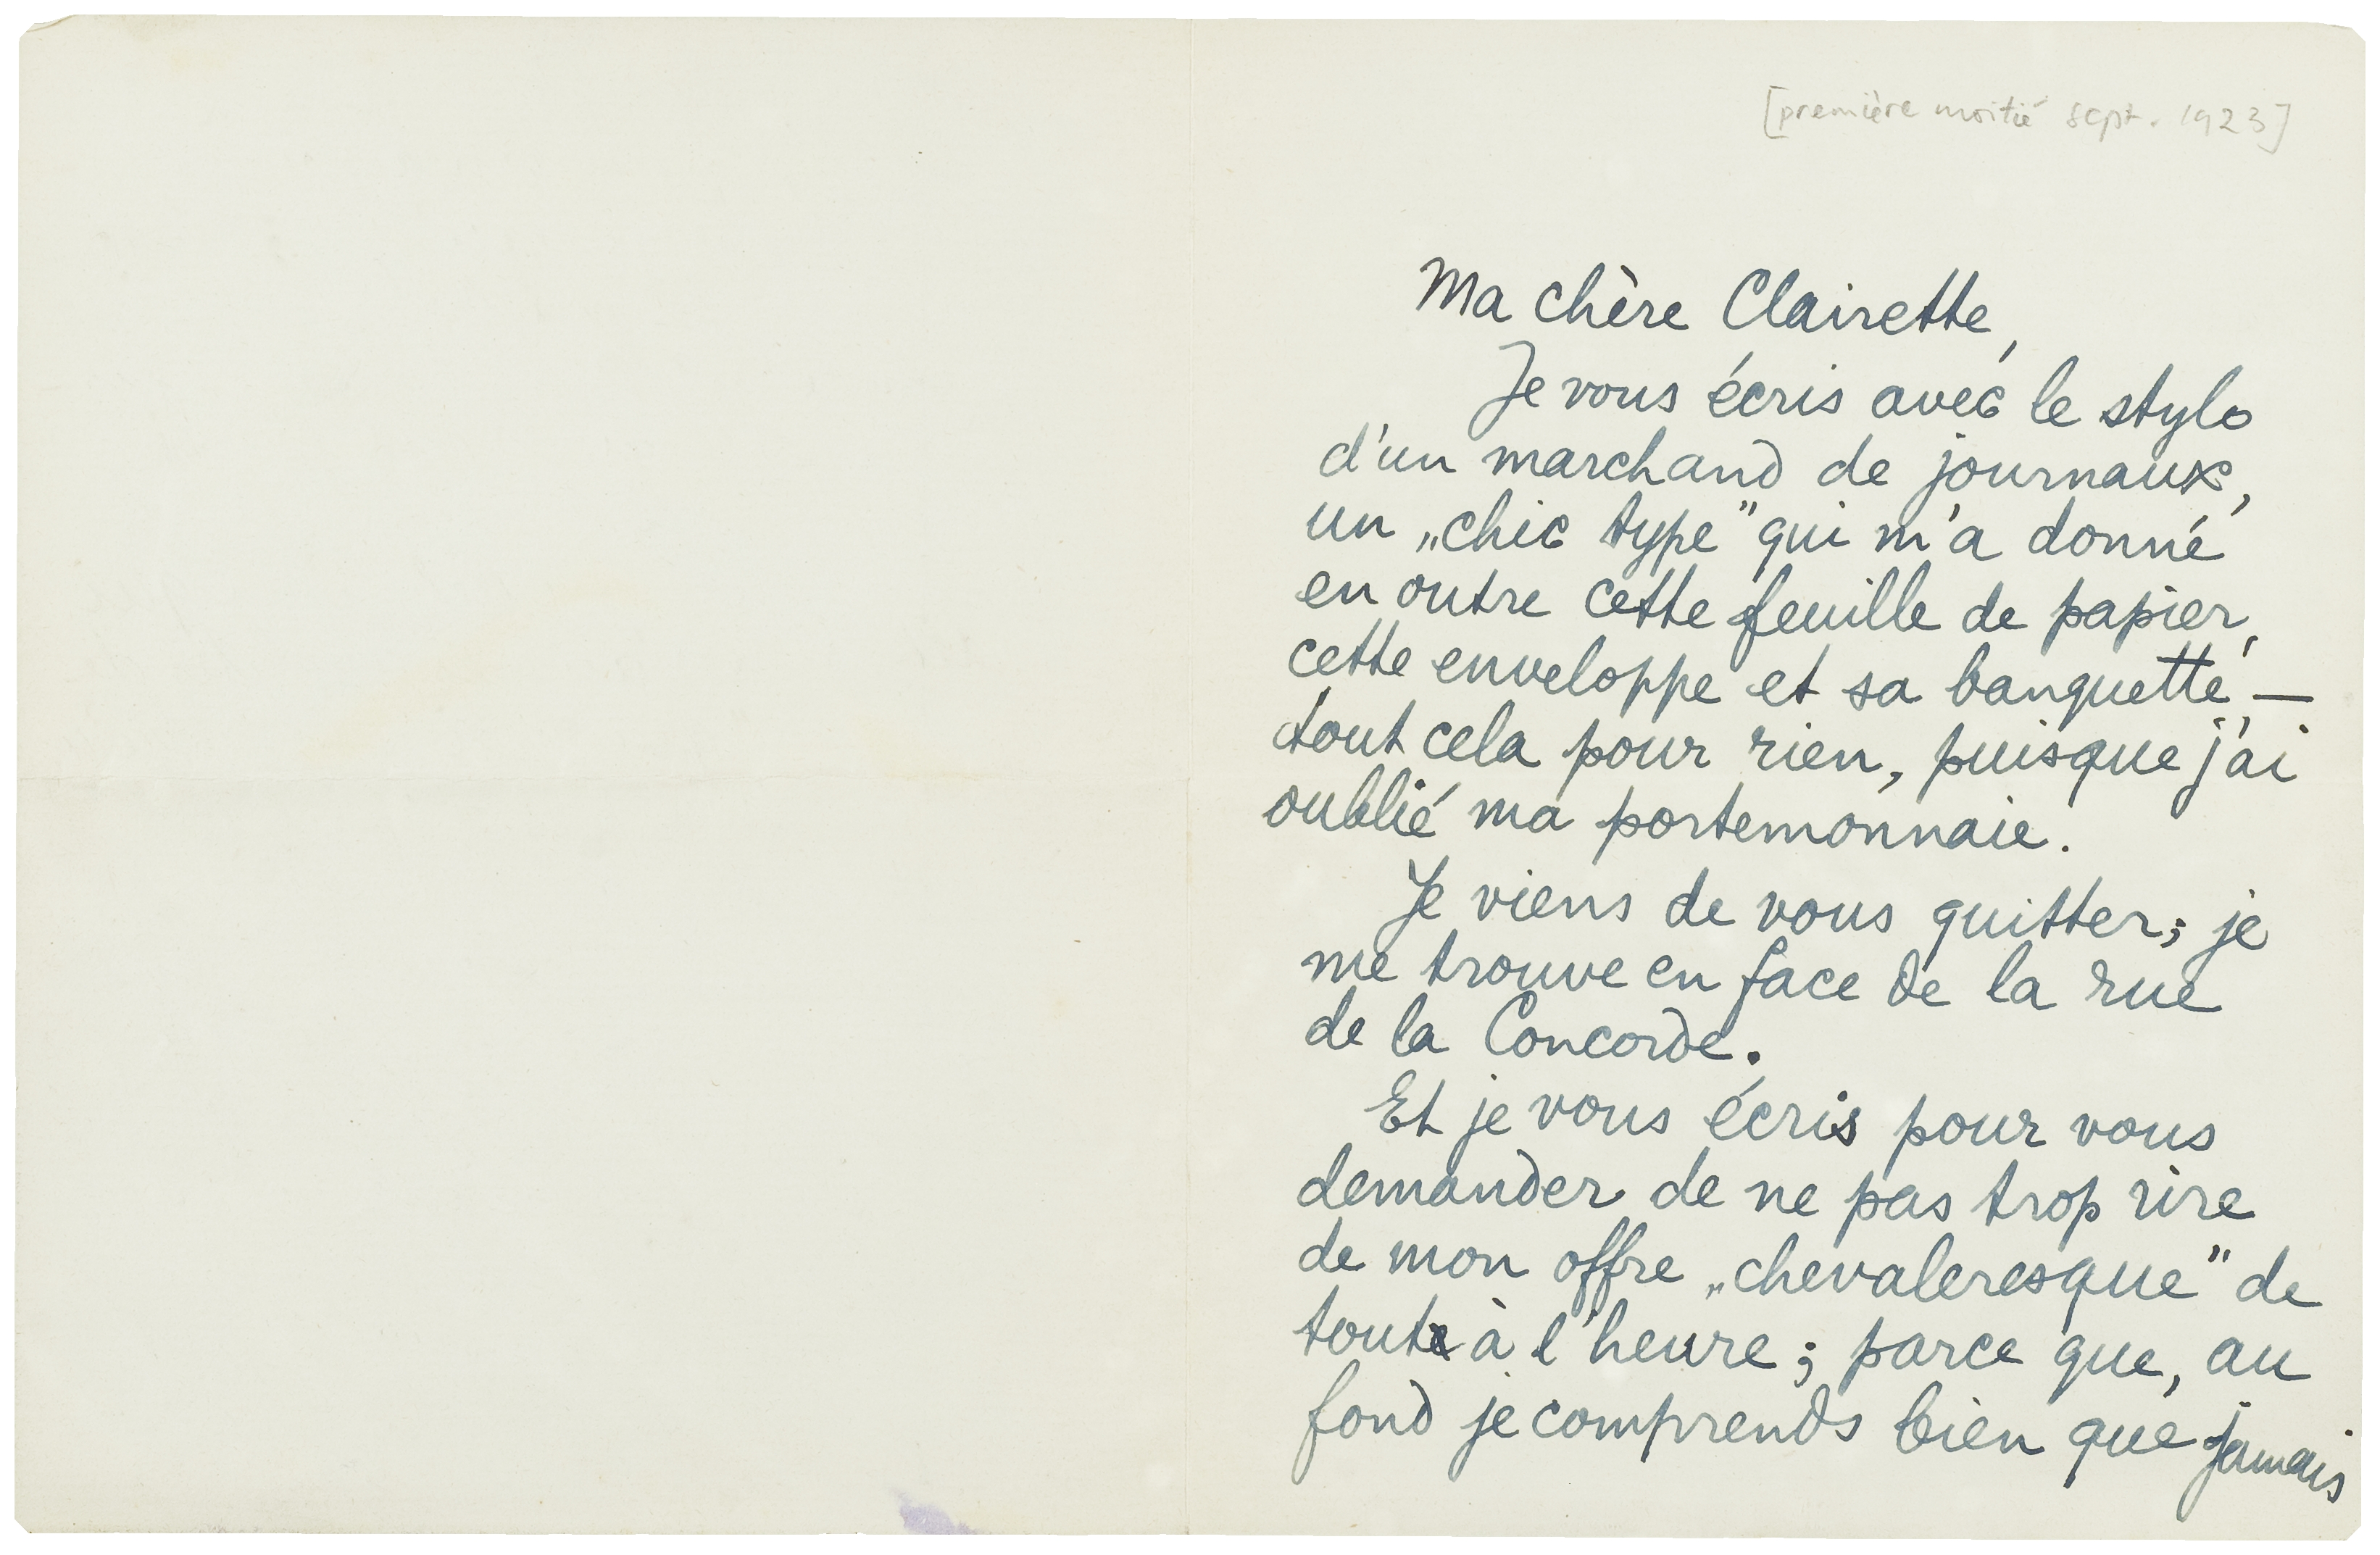 [première moitié sept. 1923]
Ma chère Clairette,
Je vous écris avec le stylo
d'un marchand de journaux,
un „chic type” qui m'a donné
en outre cette feuille de papier,
cette enveloppe et sa banquette, —
tout cela pour rien, puisque j'ai
oublié ma portemonnaie.
Je viens de vous quitter; je
me trouve en face de la rue
de la Concorde.
Et je vous écris pour vous
demander de ne pas trop rire
de mon offre „chevaleresque” de
tout à l'heure; parce que, au
fond je comprends bien que jamais